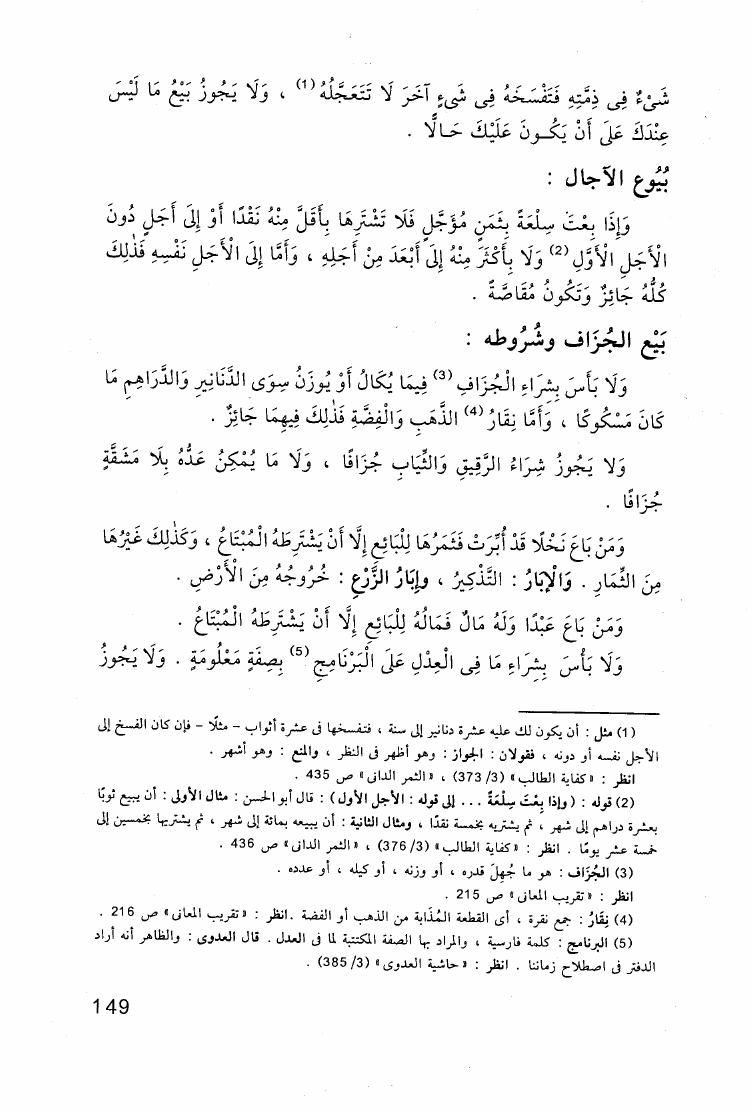 شَيْءٌ فِي ذِمَّتِهِ فَتَفْسَخَهُ فِي شَيْءٍ آخَرَ لَا تَتَعَجَّلُهُ (1) ، وَلَا يَجُوزُ بَيْعُ مَا لَيْسَ
عِنْدَكَ عَلَى أَنْ يَكُـونَ عَلَيْكَ حَـالًّا .
بُيُوع الآجال :
وَإِذَا بِعْتَ سِلْعَةً بِثَمَنٍ مُؤَجَّلٍ فَلَا تَشْتَرِهَا بِأَقَلَّ مِنْهُ نَقْدًا أَوْ إِلَى أَجَلٍ دُونَ
الْأَجَلِ الْأَوَّلِ (2) وَلَا بِأَكْثَرَ مِنْهُ إِلَى أَبْعَدَ مِنْ أَجَلِهِ ، وَأَمَّا إِلَى الْأَجَلِ نَفْسِهِ فَذٰلِكَ
كُلُّهُ جَائِزٌ وَتَكُونُ مُقَاصَّةً .
بَيْع الجُزَاف وشُرُوطه :
وَلَا بَأْسَ بِشِرَاءِ الْجُزَافِ (3) فِيمَا يُكَالُ أَوْ يُوزَنُ سِوَى الدَّنَانِيرِ وَالدَّرَاهِمِ مَا
كَانَ مَسْكُوكًا ، وَأَمَّا نِقَارُ (4) الذَّهَبِ وَالْفِضَّةِ فَذٰلِكَ فِيهِمَا جَائِزٌ .
وَلَا يَجُوزُ شِرَاءُ الرَّقِيقِ وَالثِّيَابِ جُزَافًا ، وَلَا مَا يُمْكِنُ عَدُّهُ بِلَا مَشَقَّةٍ
جُزَافًا .
وَمَنْ بَاعَ نَخْلًا قَدْ أُبِّرَتْ فَثَمَرُهَا لِلْبَائِعِ إِلَّا أَنْ يَشْتَرِطَهُ الْمُبْتَاعُ ، وَكَذٰلِكَ غَيْرُهَا
مِنَ الثِّمَارِ . وَالْإِبَارُ : التَّذْكِيرُ ، وإِبَارُ الزَّرْعِ : خُرُوجُهُ مِنَ الْأَرْضِ .
وَمَنْ بَاعَ عَبْدًا وَلَهُ مَالٌ فَمَالُهُ لِلْبَائِعِ إِلَّا أَنْ يَشْتَرِطَهُ الْمُبْتَاعُ .
وَلَا بَأْسَ بِشِرَاءِ مَا فِي الْعِدْلِ عَلَى الْبَرْنَامِجِ (5) بِصِفَةٍ مَعْلُومَةٍ . وَلَا يَجُوزُ
(1) مثل : أن يكون لك عليه عشرة دنانير إلى سنة ، فتفسخها في عشرة أثواب – مثلًا – فإن كان الفسخ إلى
الأجل نفسه أو دونه ، فقولان : الجواز : وهو أظهر في النظر ، والمنع : وهو أشهر .
انظر : «كفاية الطالب» (3/ 373) ، «الثمر الداني» ص 435 .
(2) قوله : (وإذا بِعْتَ سِلْعَةً ... إلى قوله : الأجل الأول) : قال أبو الحسن : مثال الأولى : أن يبيع ثوبًا
بعشرة دراهم إلى شهر ، ثم يشتريه بخمسة نقدًا ، ومثال الثانية : أن يبيعه بمائة إلى شهر ، ثم يشتريها بخمسين إلى
خمسة عشر يومًا . انظر : «كفاية الطالب» (3/ 376) ، «الثمر الداني» ص 436 .
(3) الجُزَاف : هو ما جُهِلَ قدره ، أو وزنه ، أو كيله ، أو عدده .
انظر : «تقريب المعاني» ص 215 .
(4) نِقَارُ : جمع نقرة ، أي القطعة المُذَابة من الذهب أو الفضة . انظر : «تقريب المعاني» ص 216 .
(5) البرنامج : كلمة فارسية ، والمراد بها الصفة المكتتبة لما في العدل . قال العدوي : والظاهر أنه أراد
الدفتر في اصطلاح زماننا . انظر : «حاشية العدوي» (3/ 385) .
149